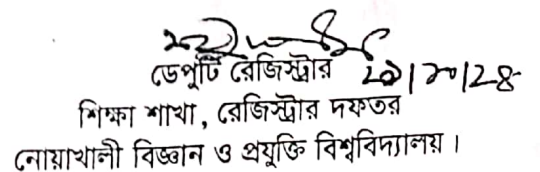 ডেপুটি রেজিস্ট্রার
শিক্ষা শাখা, রেজিস্ট্রার দফতর
নোয়াখালী বিজ্ঞান ও প্রযুক্তি বিশ্ববিদ্যালয়।